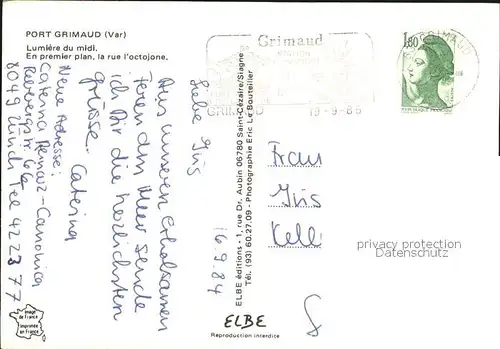 PORT GRIMAUD (Var)
Lumière du midi.
En premier plan, la rue l'octogone.
Grimaud
GRIMAUD
18-9-86
1,80
GRIMAUD
REPUBLIQUE FRANÇAISE
Liebe Iris
Aus unseren Erholsamen
Ferien am Meer sende
ich Dir die herzlichsten
Grüsse. Caterina
Neue Adresse:
8049 Zürich Tel 42 23 77
16.9.84
ELBE éditions - 1, rue Dr. Aubin 06780 Saint-Cézaire/Siagne
Tél. (93) 60.27.09 - Photographie Eric Le Bouteiller
Frau
Iris
Kell
privacy protection
Datenschutz
image
de France
imprimée
en France
ELBE
Reproduction interdite